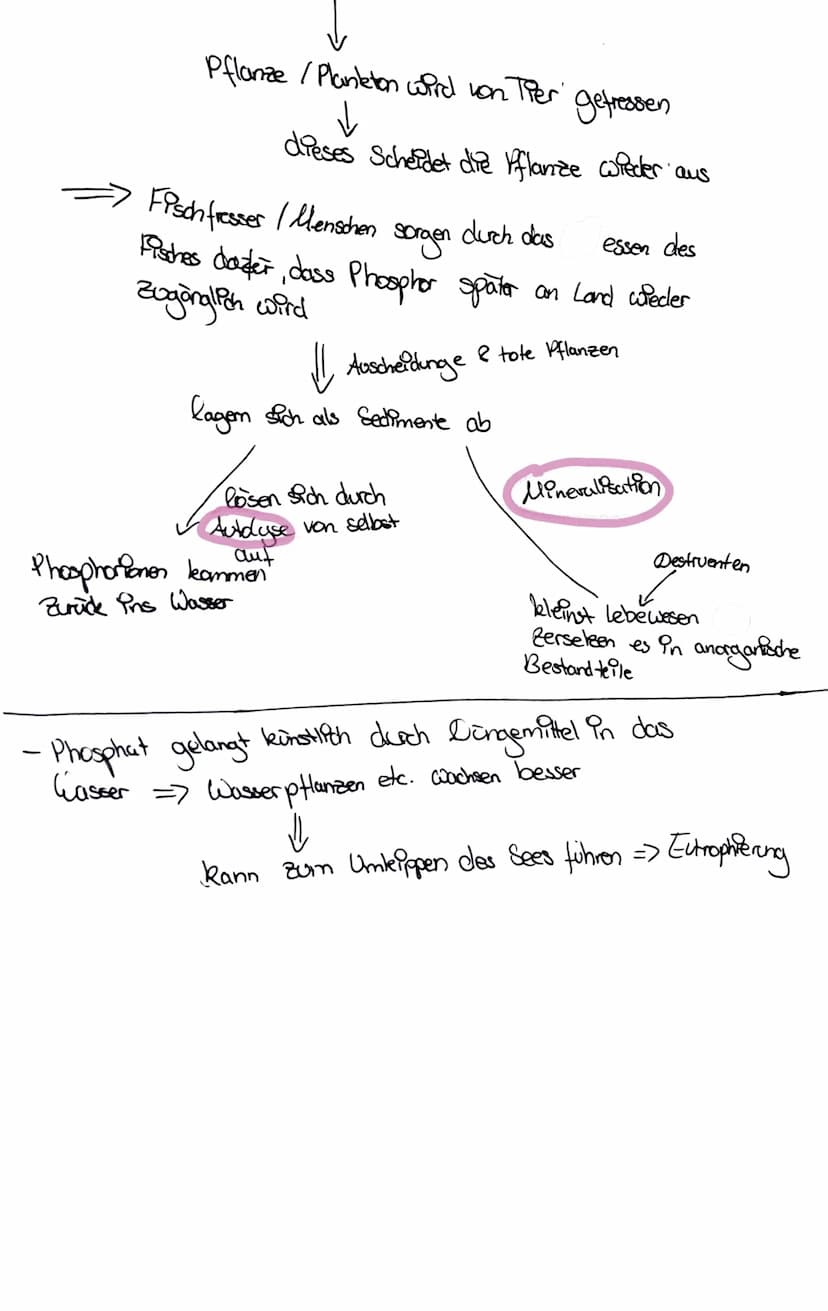 Pflanze / Plankton wird von Tier gefressen
dieses scheidet die Pflanze wieder aus
⇒ Fischfresser / Menschen sorgen durch das essen des
Fisches dafür, dass Phosphor später an Land wieder
zugänglich wird
Auscheidunge & tote Pflanzen
lagern sich als Sedimente ab
lösen sich durch
Autolyse von selbst
auf
Phosphorionen kommen
zurück ins Wasser
Mineralisation
Destruenten
kleinst lebewesen
zersetzen es in anorganische
Bestandteile
- Phosphat gelangt künstlich durch Düngemittel in das
Wasser ⇒ Wasserpflanzen etc. wachsen besser
kann zum Umkippen des Sees führen ⇒ Eutrophierung